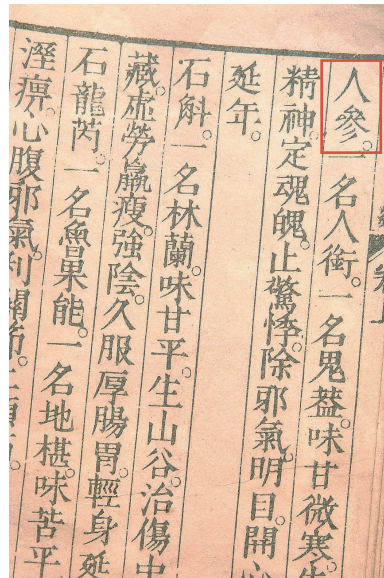 人參。一名人銜。一名鬼葢。味甘微寒。
精神。定魂魄。止驚悸。除邪氣。明目。開心
延年。
石斛。一名林蘭。味甘平。生山谷。治傷中
藏。虛勞羸瘦。強陰。久服厚腸胃。輕身延
石龍芮。一名魯果能。一名地椹。味苦平
溼痹。心腹邪氣。利關節。